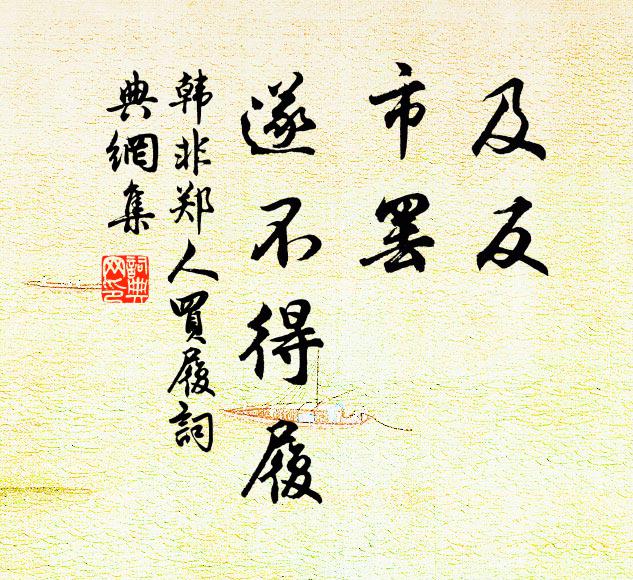 及反
市罢
遂不得履
韩非郑人買履詞
典網集
詞典
网